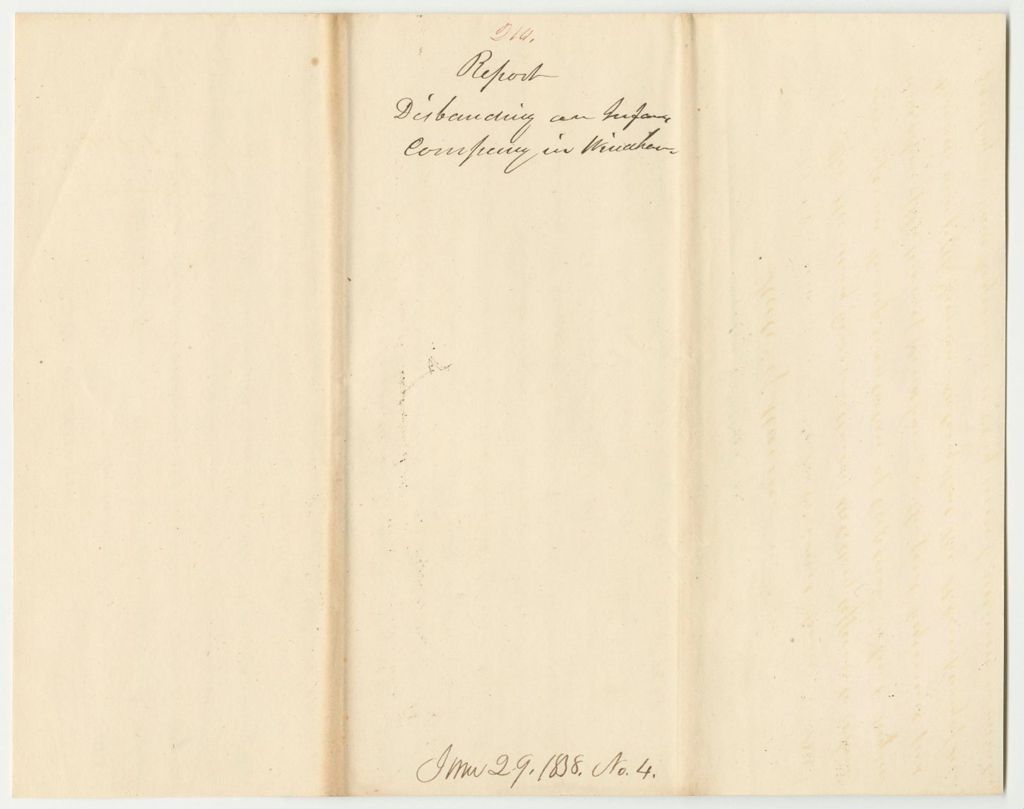 210.
Report
Disbanding an Infan
Company in Windham
June 29. 1838. No. 4.